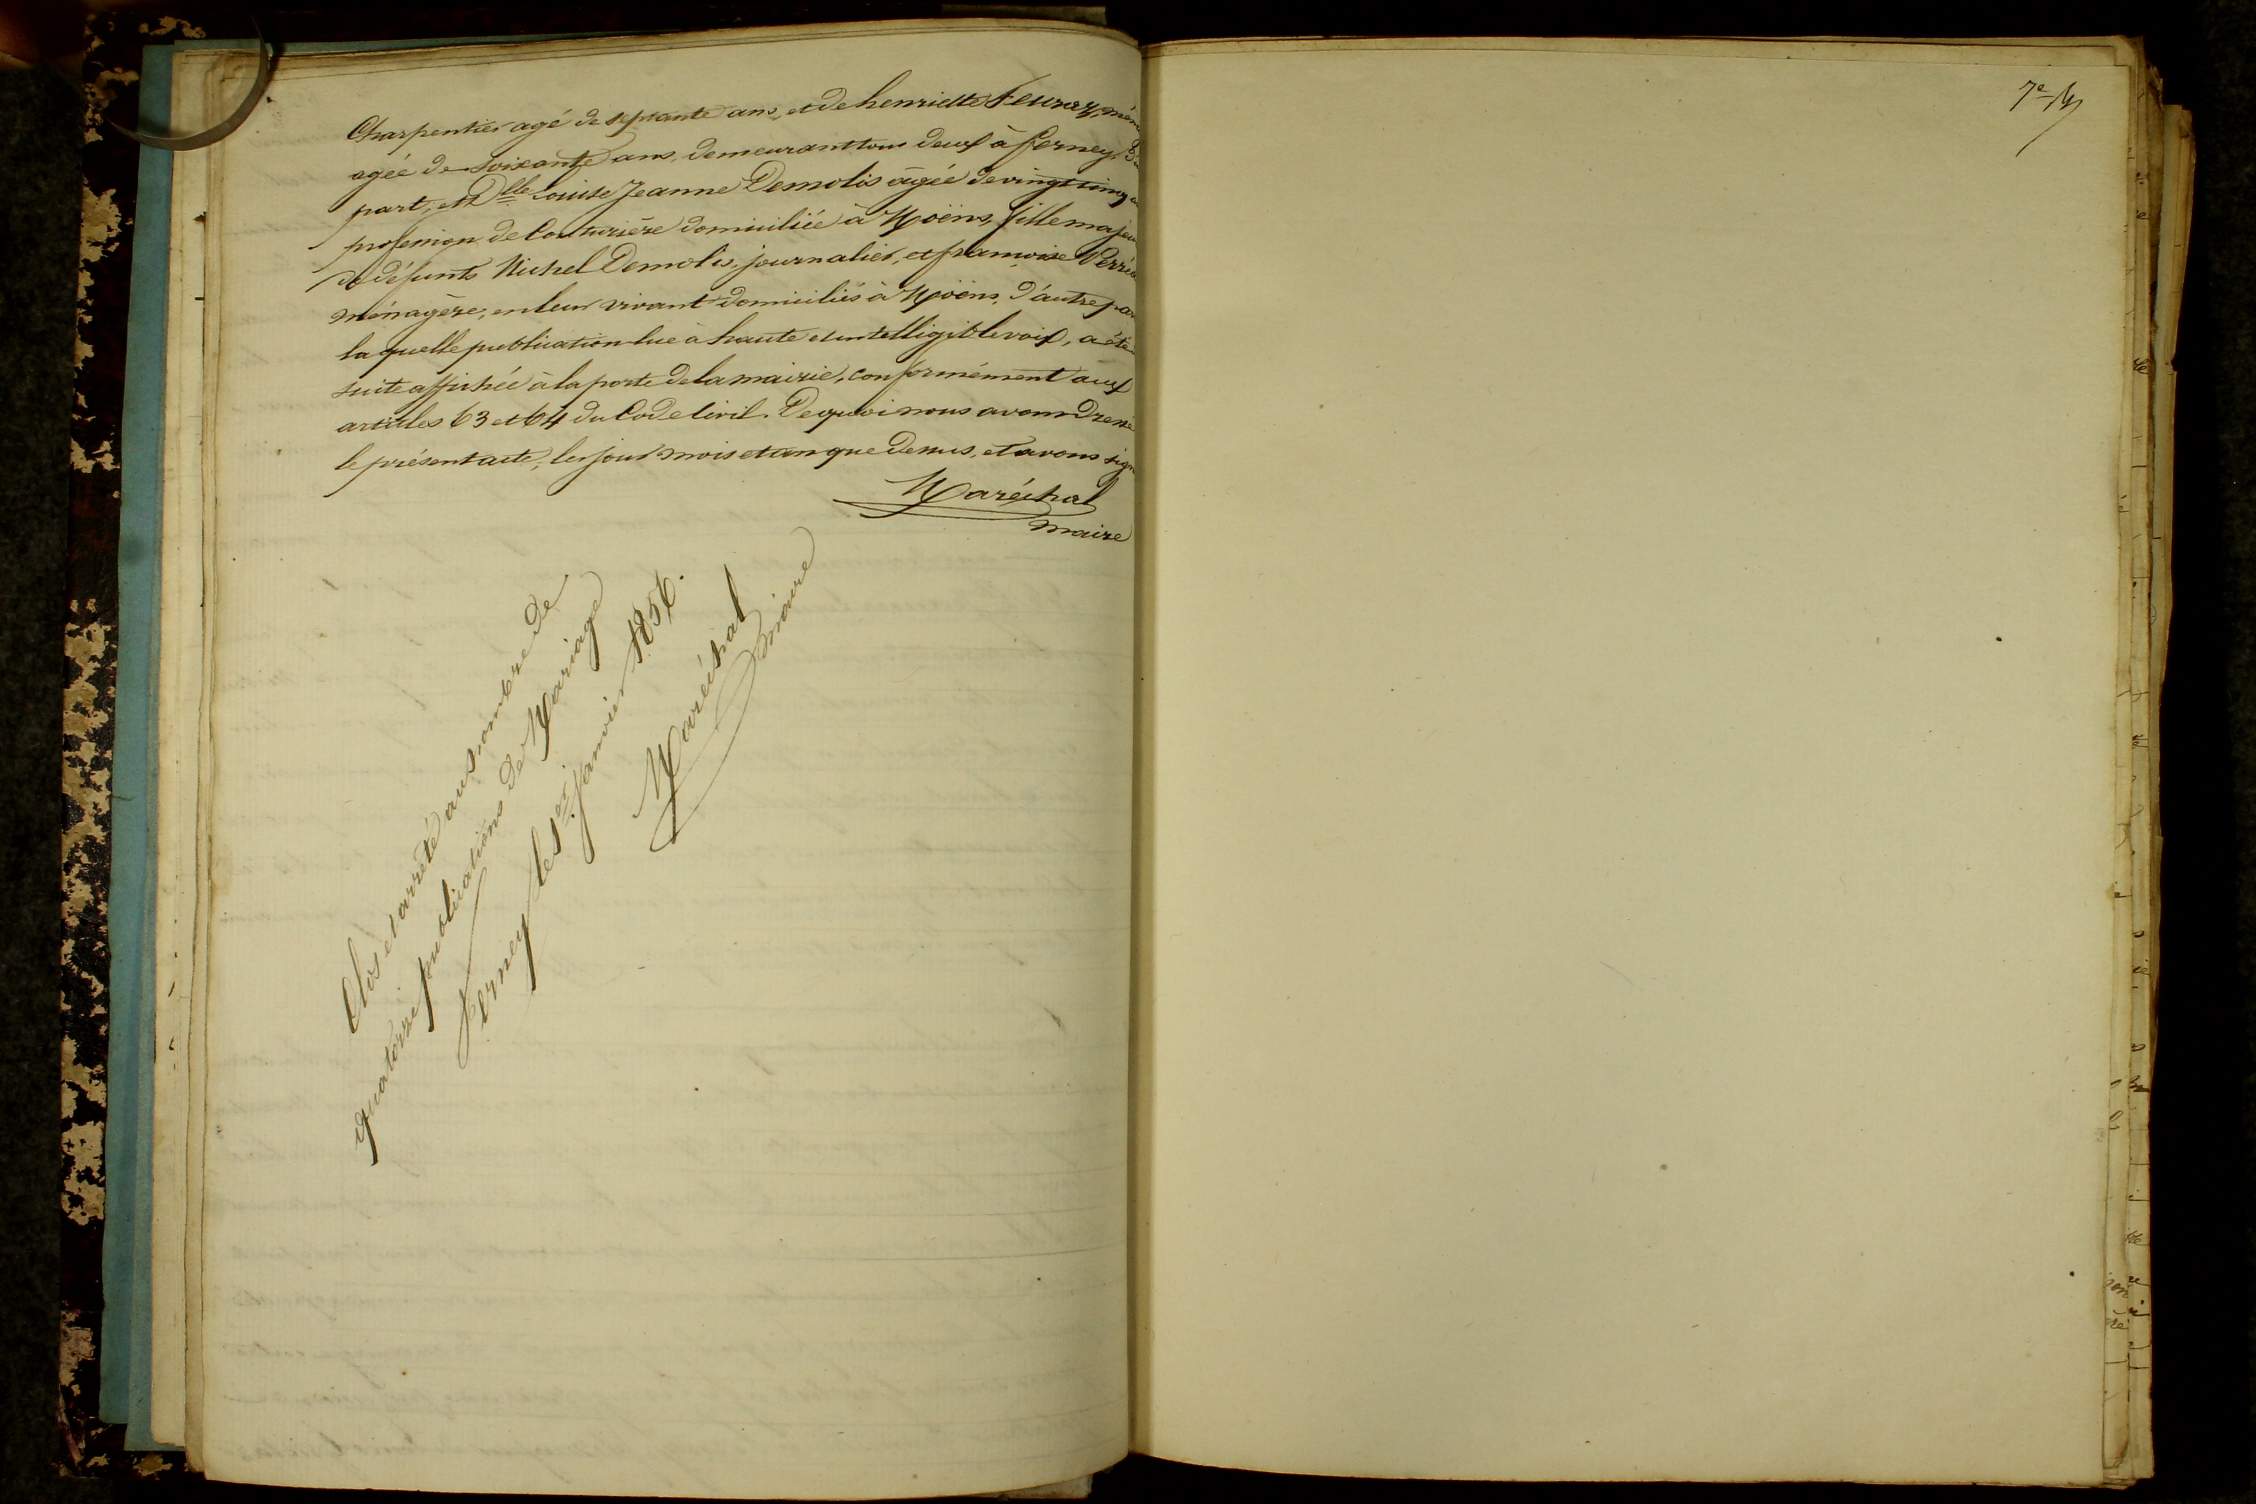 Charpentier agé de septante ans, et de henriette Feuraz, mén
agée de soixante ans, demeurant tous deux à ferney, d'u
part; et Dlle Louise Jeanne Demolis âgée de vingt cinq a
profession de Couturière domiciliée à Moëns, fille majeu
de défunts Michel Demolis, journalier, et françoise Perré
ménagère, en leur vivant domiciliés à Moëns, d'autre par
la quelle publication lue à haute et intelligible voix, a été
suite affichée à la porte de la mairie, conformément aux
articles 63 et 64 du Code Civil. De quoi nous avons dressé
le présent acte, les jour mois et an que dessus, et avons sign
Maréchal
maire
Clos et arrêté au nombre de
quatorze publications de Mariage
Ferney le 1er janvier 1856.
Maréchal
maire
7e